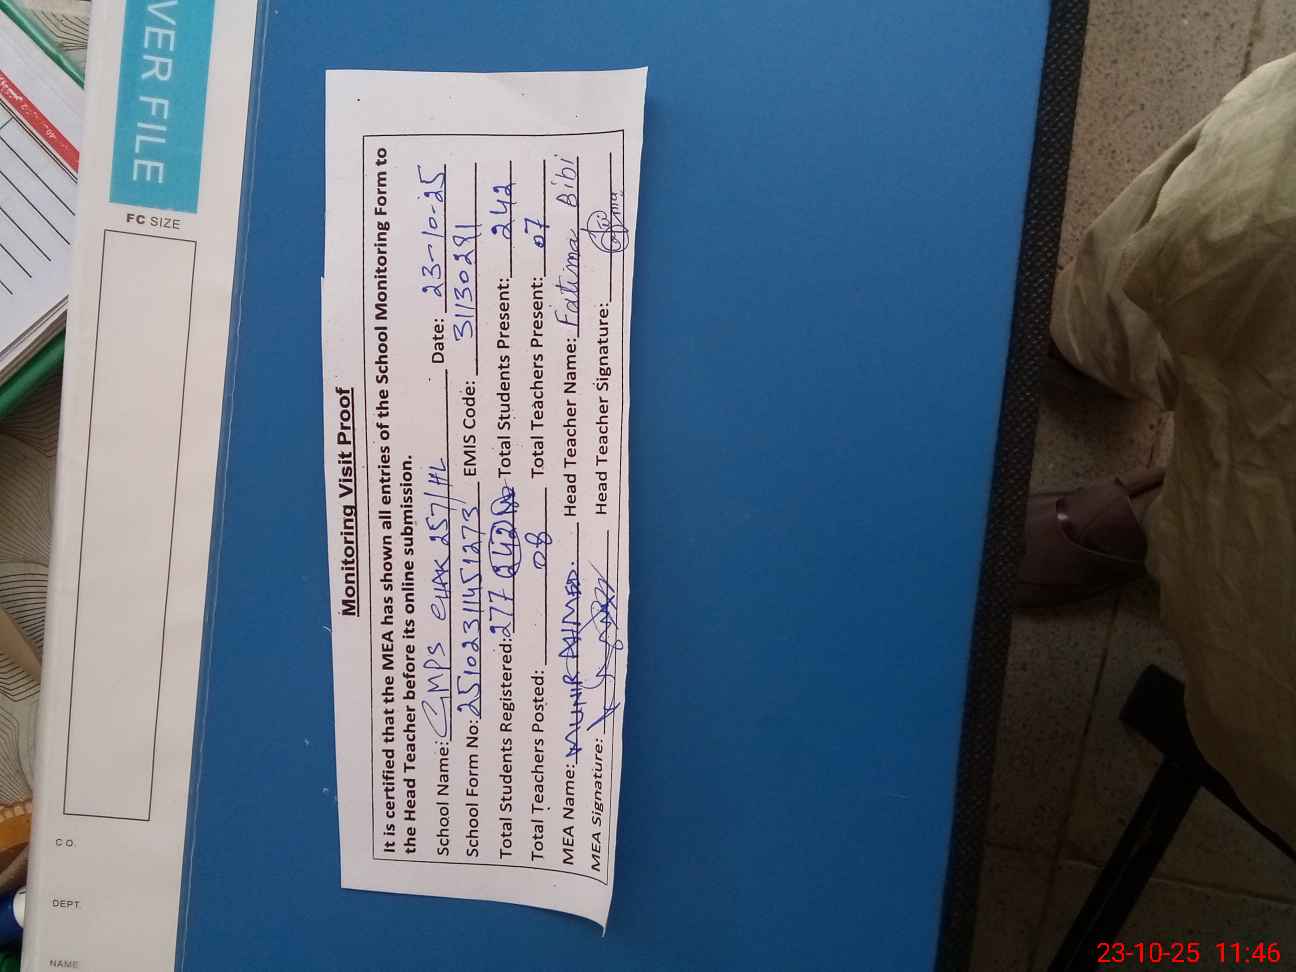 Monitoring Visit Proof
It is certified that the MEA has shown all entries of the School Monitoring Form to
the Head Teacher before its online submission.
School Name: GMPS CHAK 257/HL Date: 23-10-25
School Form No: 2510231145 1273 EMIS Code: 31130291
Total Students Registered: 277 242 Total Students Present: 242
Total Teachers Posted: 08 Total Teachers Present: 07
MEA Name: MUNIR AHMED. Head Teacher Name: Fatima Bibi
MEA Signature: Head Teacher Signature:
VER FILE
FC SIZE
CO.
DEPT.
NAME
23-10-25 11:46